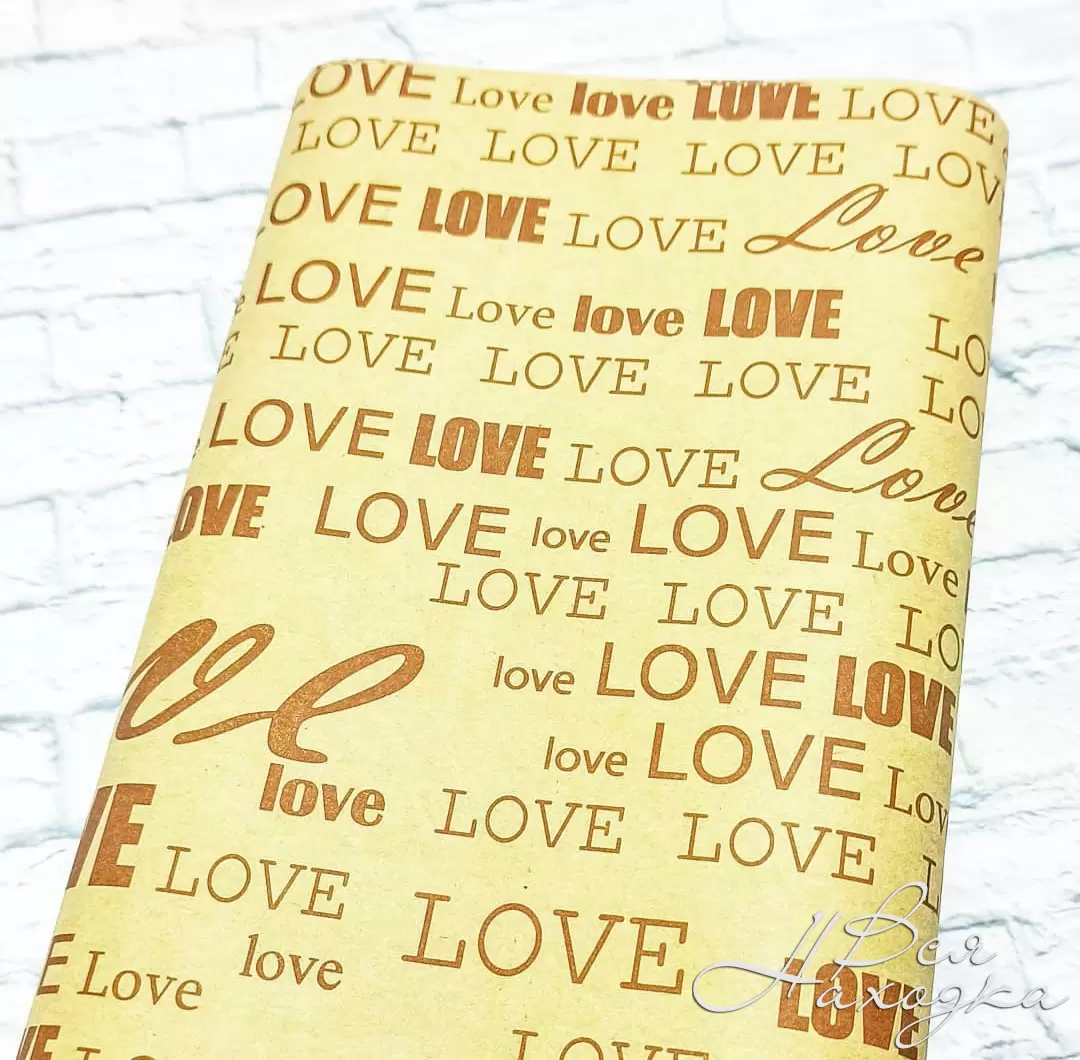 LOVE Love love LOVE LOVE
LOVE LOVE LOVE LOV
OVE LOVE LOVE Love
e LOVE Love love LOVE LO
E LOVE LOVE LOVE LO
LOVE LOVE LOVE Love
LOVE LOVE love LOVE Love
LOVE LOVE LO
ve love LOVE LOVE
love LOVE Lov
love LOVE LOVE L
VE LOVE LOVE
E Love love LOVE
VE LO LOVE
Вся Находка